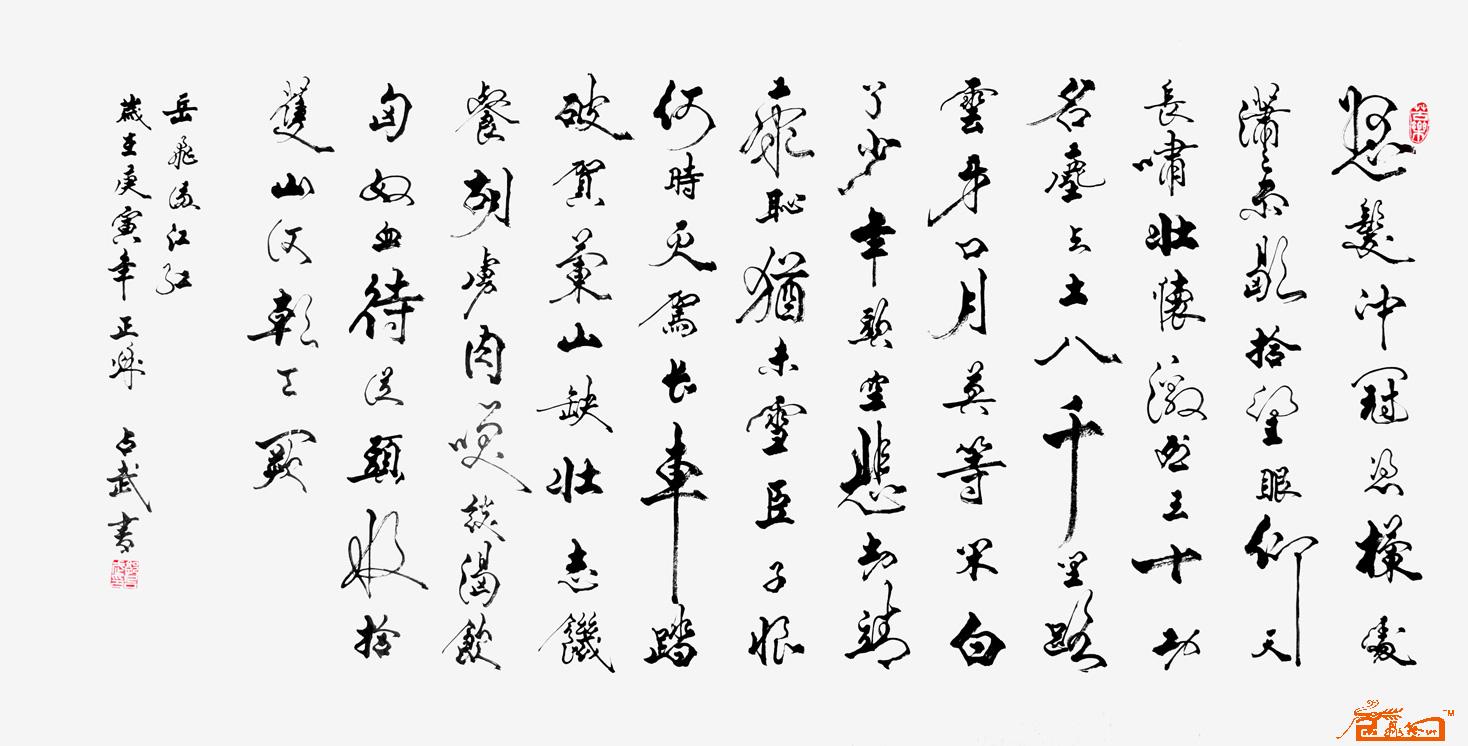 怒髮沖冠憑欄處
瀟〻雨歇抬望眼仰天
長嘯壯懷激烈三十功
名塵與土八千里路
雲和月莫等閑白
了少年頭空悲切靖
康恥猶未雪臣子恨
何時滅駕長車踏
破賀蘭山缺壯志饑
餐胡虜肉笑談渴飲
匈奴血待從頭收拾
舊山河朝天闕
岳飛滿江紅
歲在庚寅年正秋 占武書